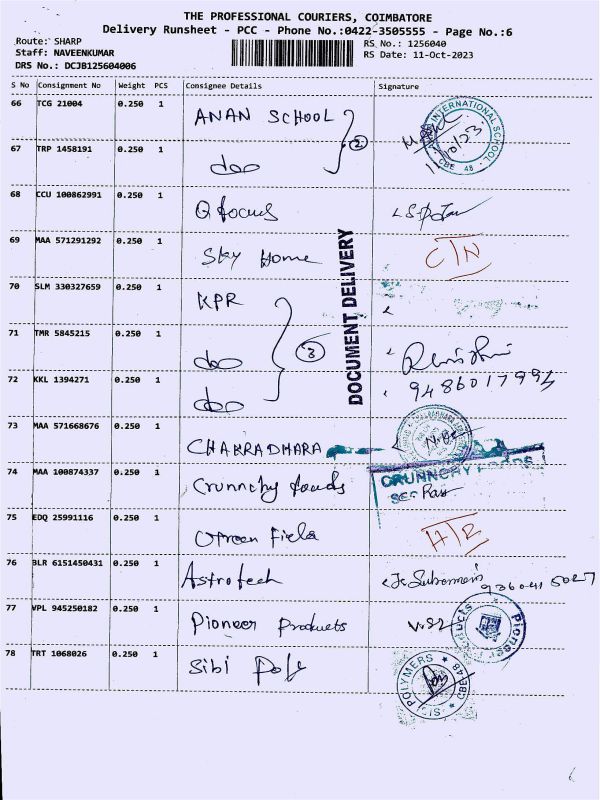 THE PROFESSIONAL COURIERS, COIMBATORE
Delivery Runsheet - PCC - Phone No.:0422-3505555 - Page No.:6
Route: SHARP
RS No.: 1256040
Staff: NAVEENKUMAR
RS Date: 11-Oct-2023
DRS No.: DCJB125604006
S No Consignment No Weight PCS Consignee Details Signature
66 TCG 21004 0.250 1 ANAN SCHOOL
INTERNATIONAL SCHOOL CBE 48
2
67 TRP 1458191 0.250 1 doo
68 CCU 100862991 0.250 1 Q focus
69 MAA 571291292 0.250 1 Sky Home C/N
DOCUMENT DELIVERY
70 SLM 330327659 0.250 1 KPR
71 TMR 5845215 0.250 1 doo
3
72 KKL 1394271 0.250 1 doo 9486017994
73 MAA 571668676 0.250 1 CHAKRADHARA
74 MAA 100874337 0.250 1 Crunnchy foods CRUNNCHY FOODS
75 EDQ 25991116 0.250 1 Green Field
76 BLR 6151450431 0.250 1 Astrotech
77 VPL 945250182 0.250 1 Pioneer Products Pioneer Products
78 TRT 1068026 0.250 1 Sibi Poly
SIBI POLYMERS CBE 48
6